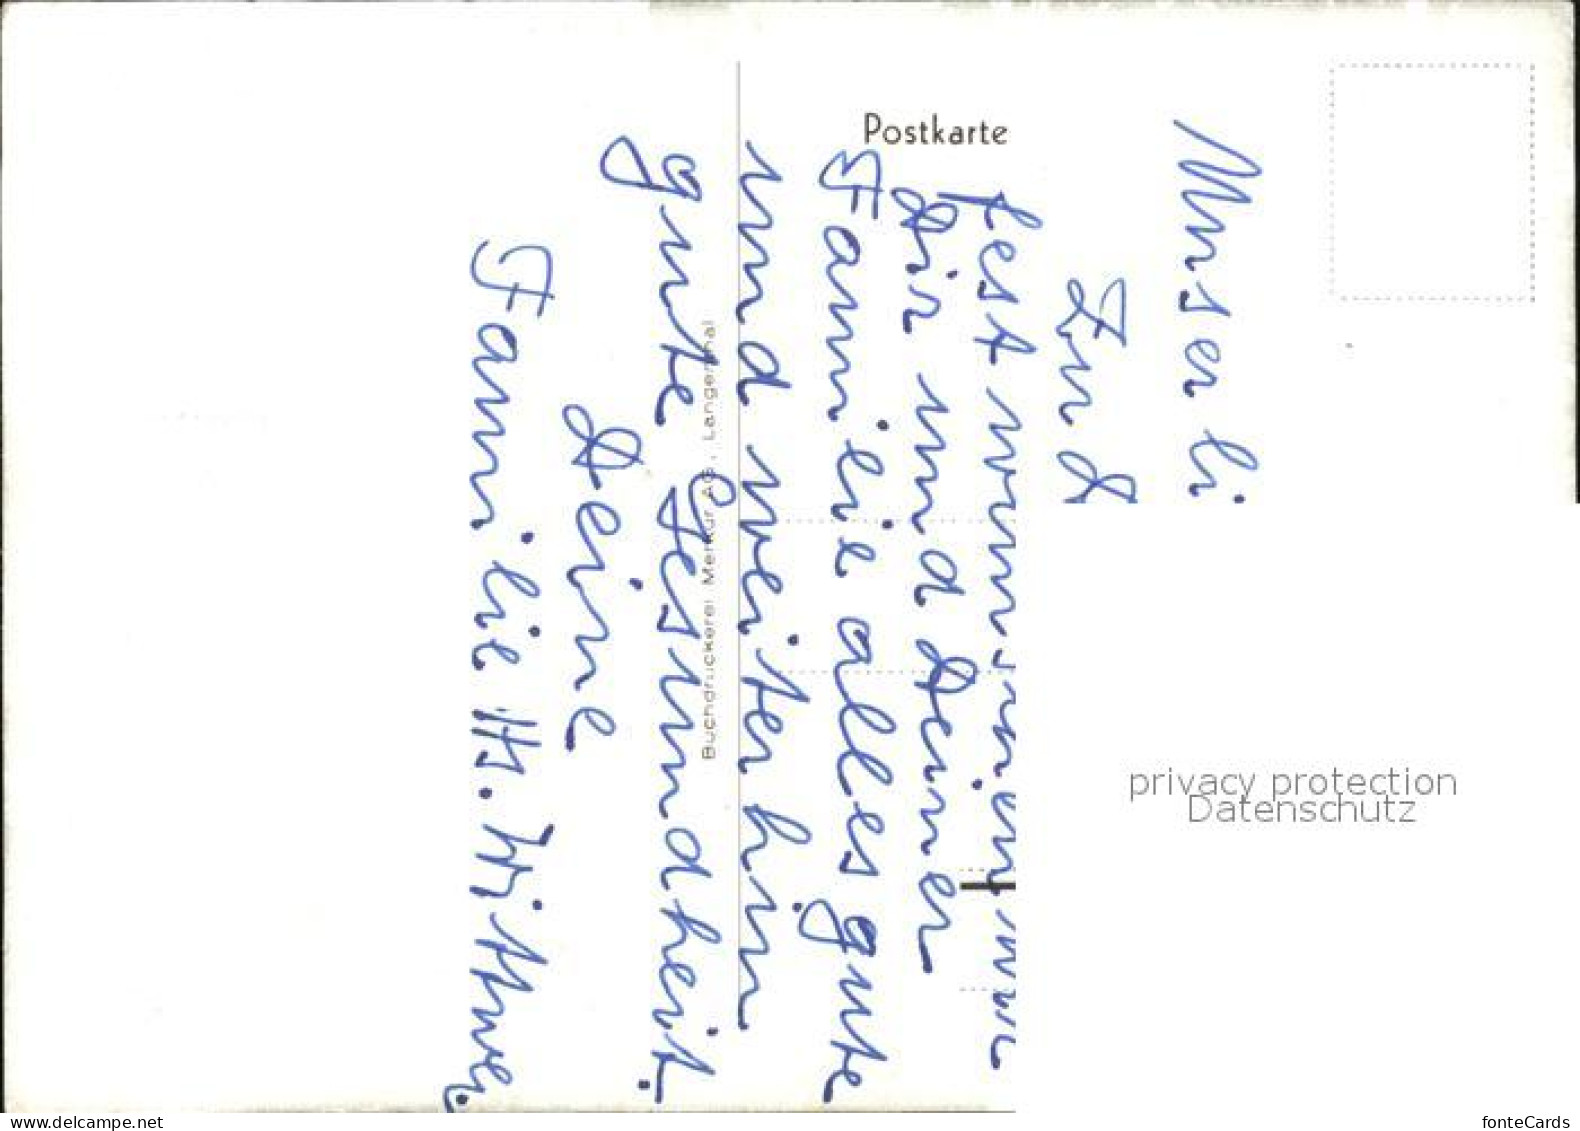 Postkarte
Unser li
Zu d
fest wünschen wir
Dir und Deiner
Familie alles gute
und weiterhin
gute Gesundheit.
Deine
Familie Hs. Wittwer
Buchdruckerei Merkur AG, Langenthal
privacy protection
Datenschutz
www.delcampe.net
fonteCards